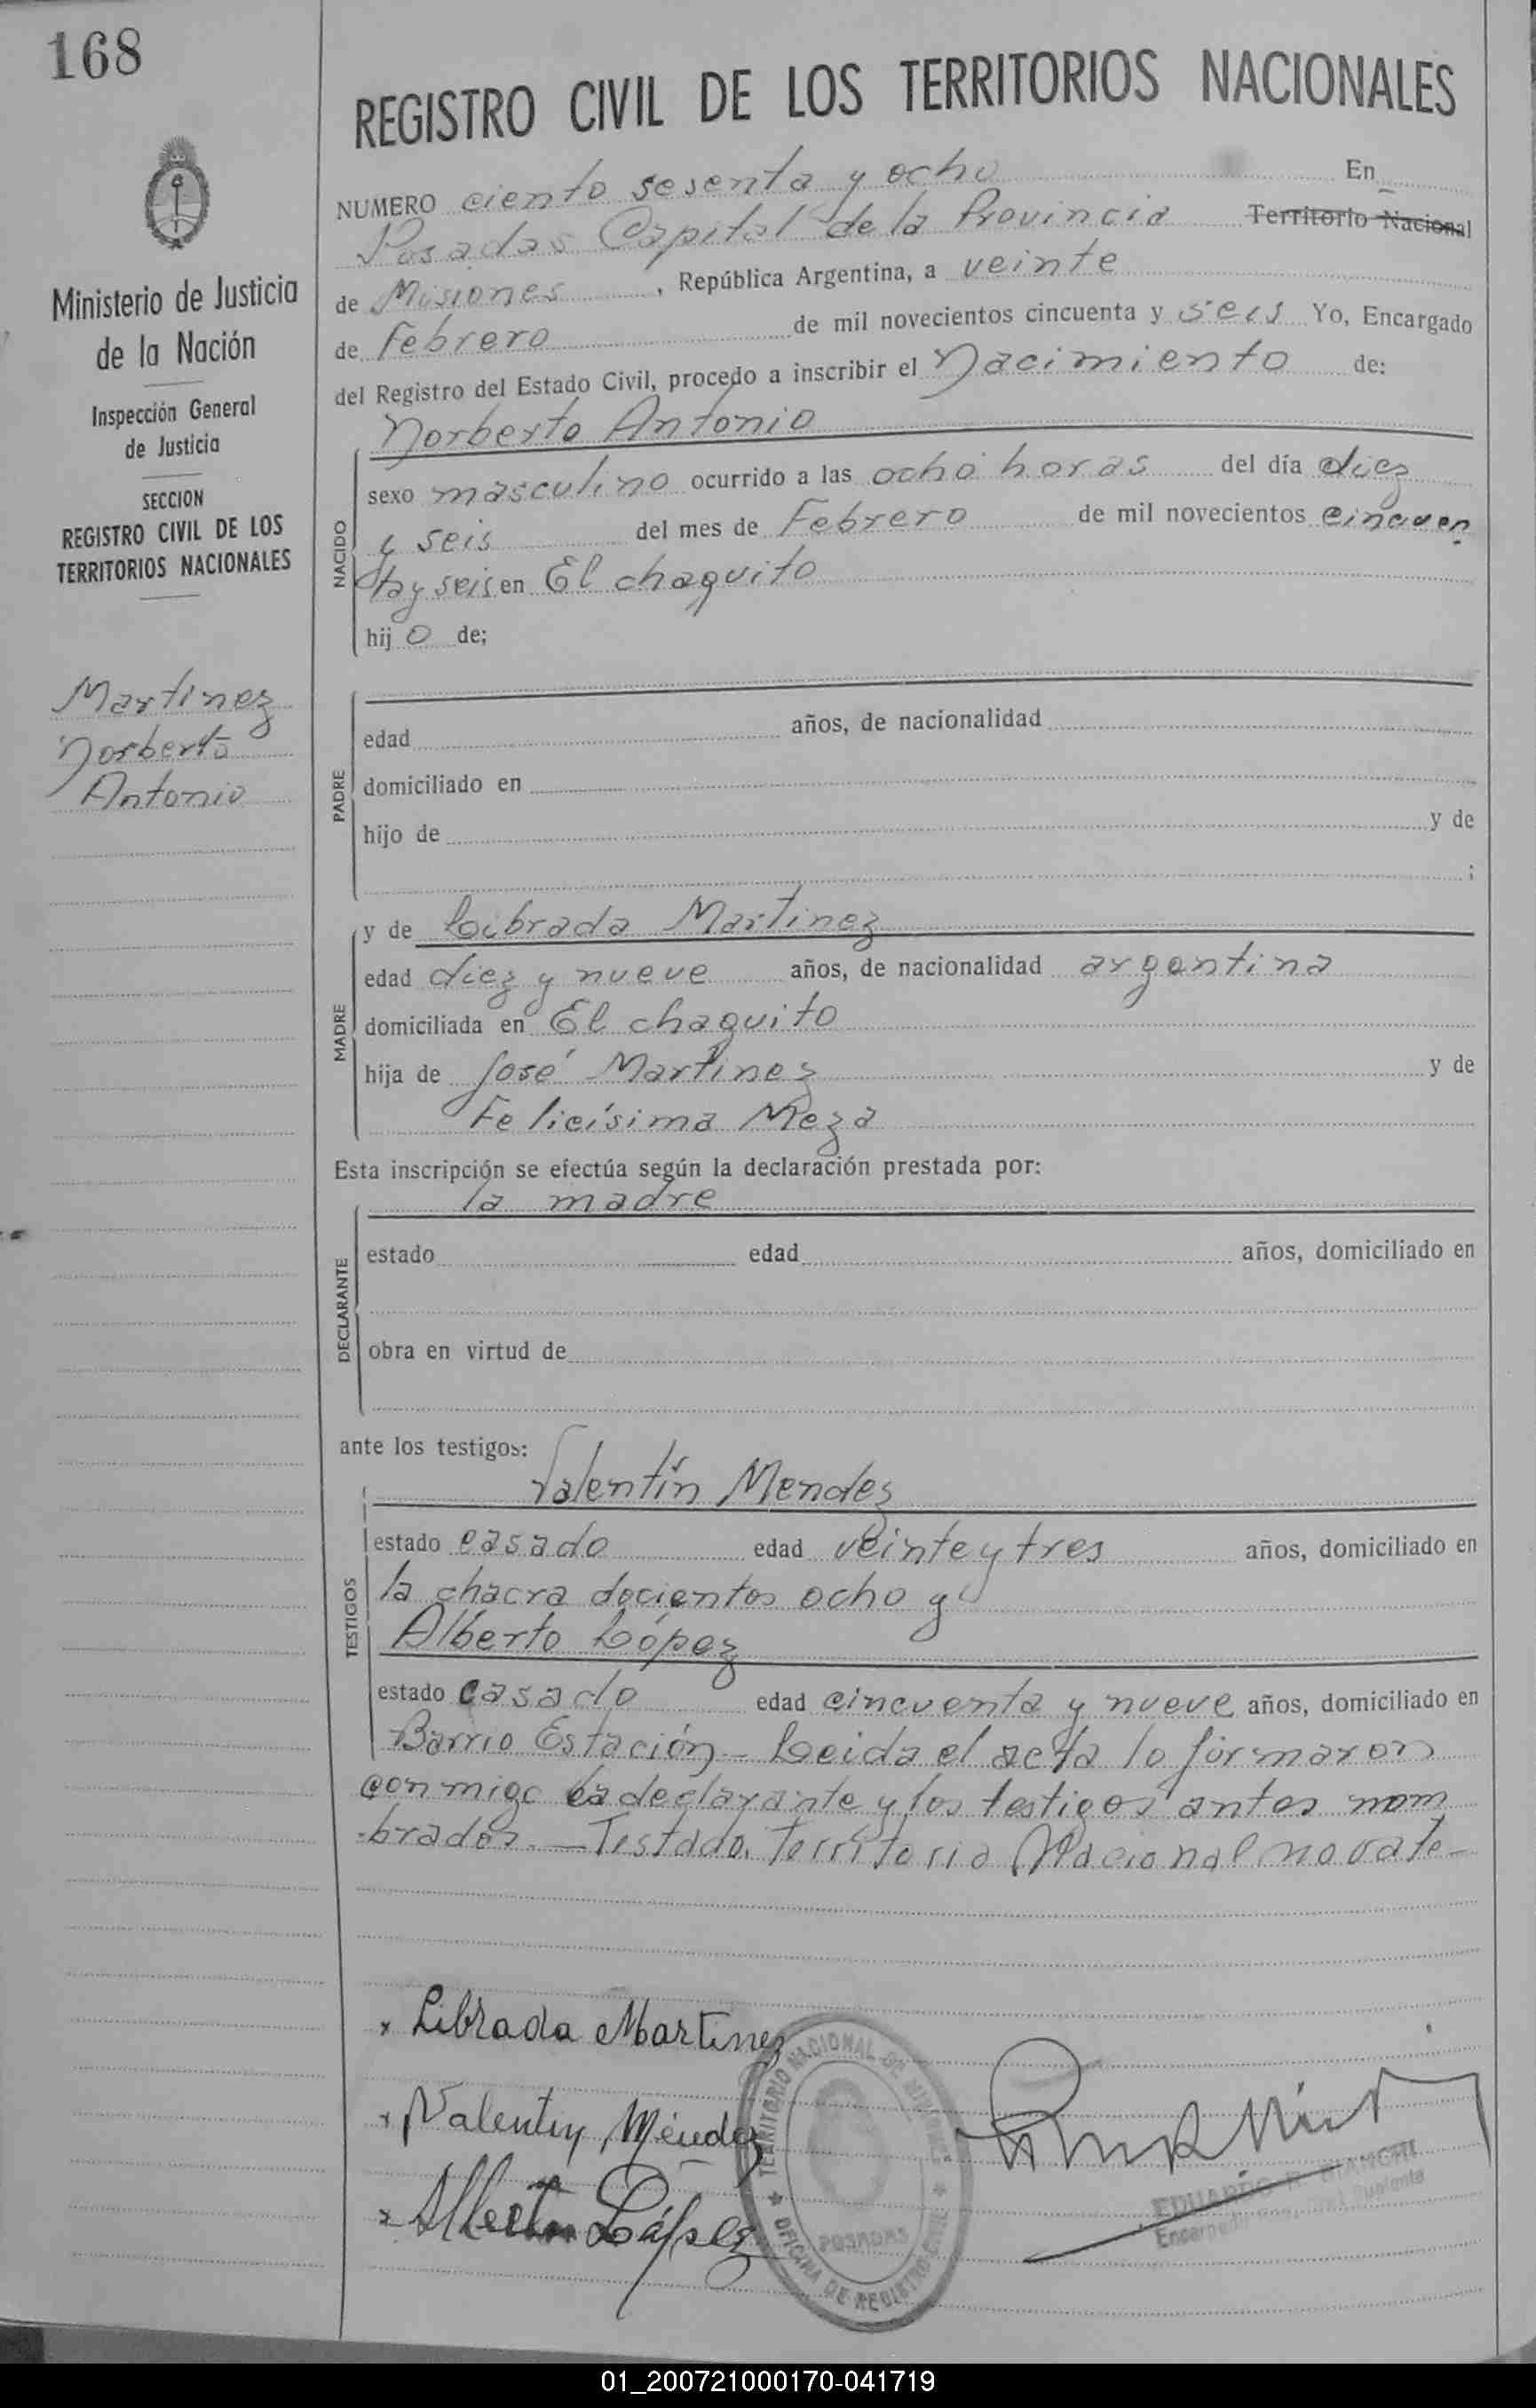 168
REGISTRO CIVIL DE LOS TERRITORIOS NACIONALES
NUMERO ciento sesenta y ocho En
Posadas Capital de la Provincia Territorio Nacional
de Misiones, República Argentina, a veinte
de Febrero de mil novecientos cincuenta y seis Yo, Encargado
del Registro del Estado Civil, procedo a inscribir el Nacimiento de:
Norberto Antonio
Ministerio de Justicia
de la Nación
Inspección General
de Justicia
SECCION
REGISTRO CIVIL DE LOS
TERRITORIOS NACIONALES
Martinez
Norberto
Antonio
NACIDO
sexo masculino ocurrido a las ocho horas del día diez
y seis del mes de Febrero de mil novecientos cincuen
ta y seis en El chaquito
hij o de;
PADRE
edad años, de nacionalidad
domiciliado en
hijo de y de
;
MADRE
y de Librada Martinez
edad diez y nueve años, de nacionalidad argentina
domiciliada en El chaquito
hija de José Martinez y de
Felicísima Meza
Esta inscripción se efectúa según la declaración prestada por:
la madre
DECLARANTE
estado edad años, domiciliado en
obra en virtud de
ante los testigos:
Valentín Mendez
TESTIGOS
estado casado edad veinte y tres años, domiciliado en
la chacra docientos ocho y
Alberto López
estado casado edad cincuenta y nueve años, domiciliado en
Barrio Estación - Leida el acta lo firmaron
conmigo la declarante y los testigos antes nom
brados. - Testado. Territorio Nacional no vale -
x Librada Martinez
x Valentín Méndez
x Alberto López
TERRITORIO NACIONAL DE MISIONES
OFICINA DE REGISTRO CIVIL
POSADAS
EDUARDO R. BIANCHI
01_200721000170-041719